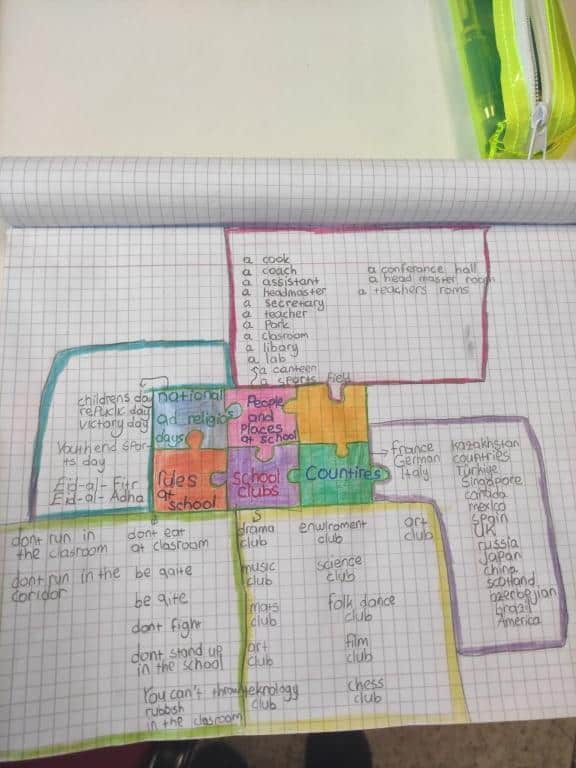 a cook
a coach
a assistant
a headmaster
a secretary
a teacher
a Park
a clasroom
a libary
a lab
a canteen
a sports field
a conferance hall
a head master room
a teachers roms
childrens day
repuclic day
victory day
Youth end spor
ts day
Eid-al-Fitr
Eid-al-Adha
national
ad religios
days
People
and
Places
at school
rules
at
school
School
clubs
Countires
France
German
Italy
kazakhstan
countries
Türkiye
Singapore
canada
mexico
spein
UK
russia
Japan
china
scotland
azerbejian
brazil
America
dont run in
the clasroom
dont run in the
coridor
dont eat
at clasroom
be qaite
be qite
dont fight
dont stand up
in the school
You can't throw
rubbsh
in the clasroom
drama
club
music
club
mats
club
art
club
teknology
club
enviroment
club
science
club
folk dance
club
film
club
chess
club
art
club